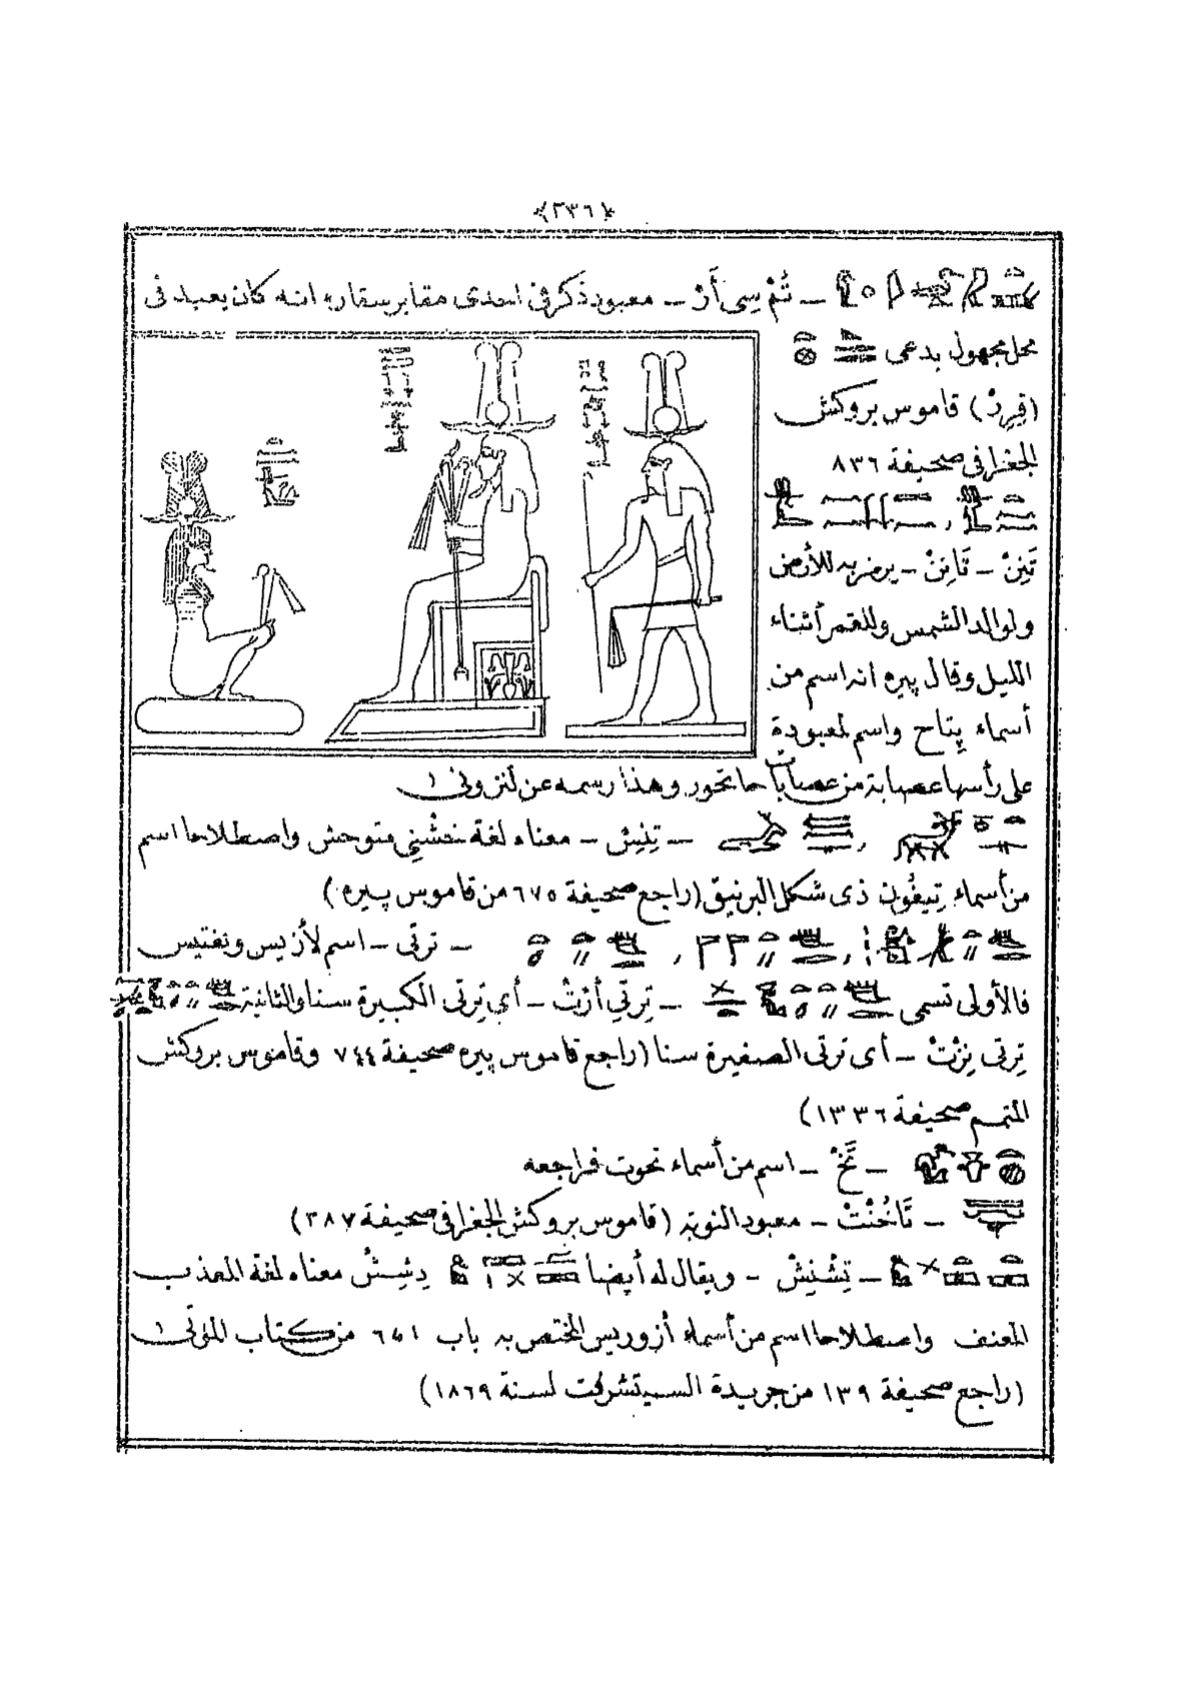 ﴿٢٣٦﴾
ـ تُمْ سِى أَرْ ـ معبود ذكر فى احدى مقابر سقاره انه كان يعبد فى
محل مجهول يدعى
(قِرِرْ) قاموس بروكش
الجغرافى صحيفة ٨٣٦
تَنِنْ ـ تَانِنْ ـ يرمز به للأرض
ولوالد الشمس وللقمر أثناء
الليل وقال پيره انه اسم من
أسماء پتاح واسم لمعبودة
على رأسها عصابة من عصابات حاتحور وهذا رسمه عن لنزونى
ـ تِنِشْ ـ معناه لغة خشْنِي متوحش واصطلاحا اسم
من أسماء تِيفُون ذى شكل البرنيق (راجع صحيفة ٦٧٥ من قاموس پيره)
ـ ترتى ـ اسم لأزيس ونفتيس
فالأولى تسمى ـ تِرتِي أرْتْ ـ أي تِرتى الكبيرة سنا والثانية
تِرتى نِزْتْ ـ أى ترتى الصغيرة سنا (راجع قاموس پيره صحيفة ٧٤٤ وقاموس بروكش
المتمم صحيفة ١٣٣٦)
ـ تَخْ ـ اسم من أسماء تحوت فراجعه
ـ تَاخُنْتْ ـ معبود النوبة (قاموس بروكش الجغرافى صحيفة ٣٨٧)
ـ تِشْتِشْ ـ ويقال له أيضا دِشِشْ معناه لغة المعذب
المعنف واصطلاحا اسم من أسماء أزوريس المختص به باب من كتاب الموتى
(راجع صحيفة ١٣٩ من جريدة السيتشرفت لسنة ١٨٦٩)